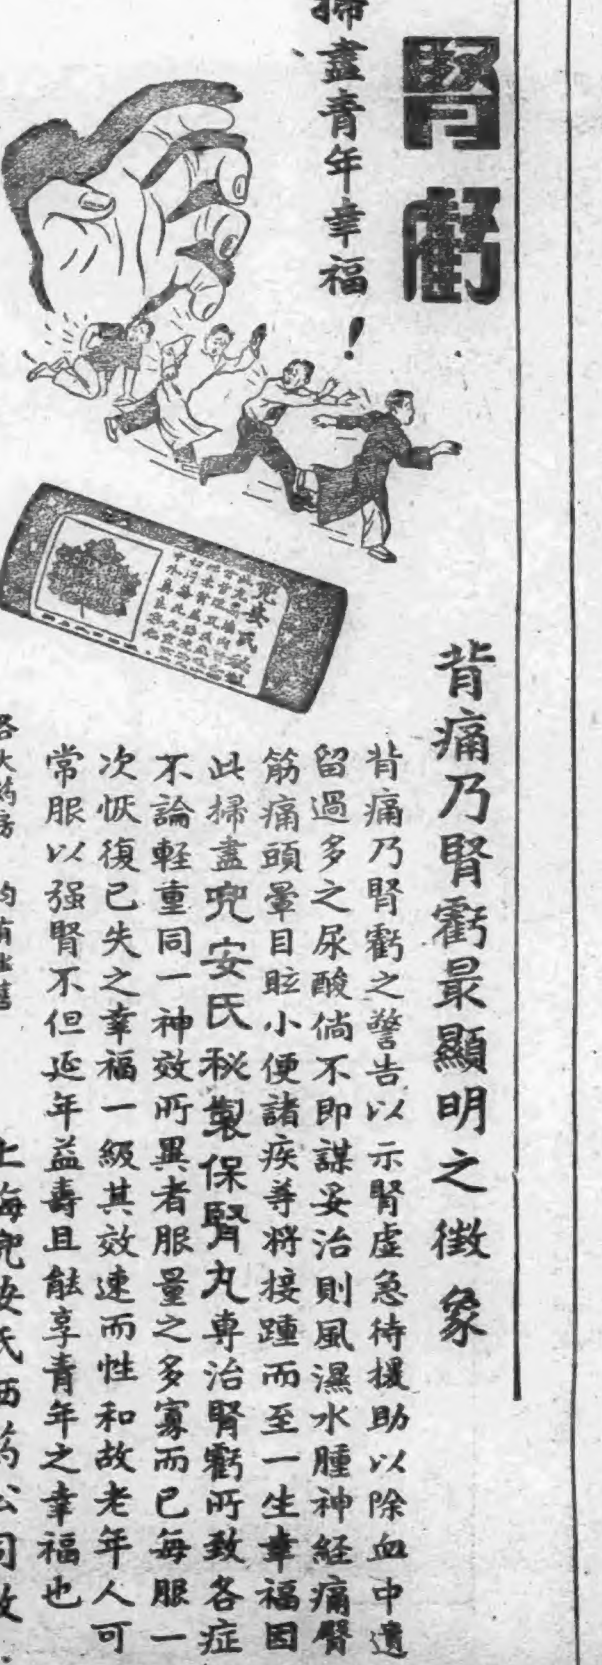 腎虧
掃盡青年幸福！
背痛乃腎虧最顯明之徵象
背痛乃腎虧之警告以示腎虛急待援助以除血中遺
留過多之尿酸倘不即謀妥治則風濕水腫神経痛腎
筋痛頭暈目眩小便諸疾等將接踵而至一生幸福因
此掃盡兜安氏秘製保腎丸專治腎虧所致各症
不論輕重同一神效所異者服量之多寡而已每服一
次恢復已失之幸福一級其效速而性和故老年人可
常服以强腎不但延年益壽且能享青年之幸福也
各大葯房均有出售
上海兜安氏西葯公司啟
兜安氏